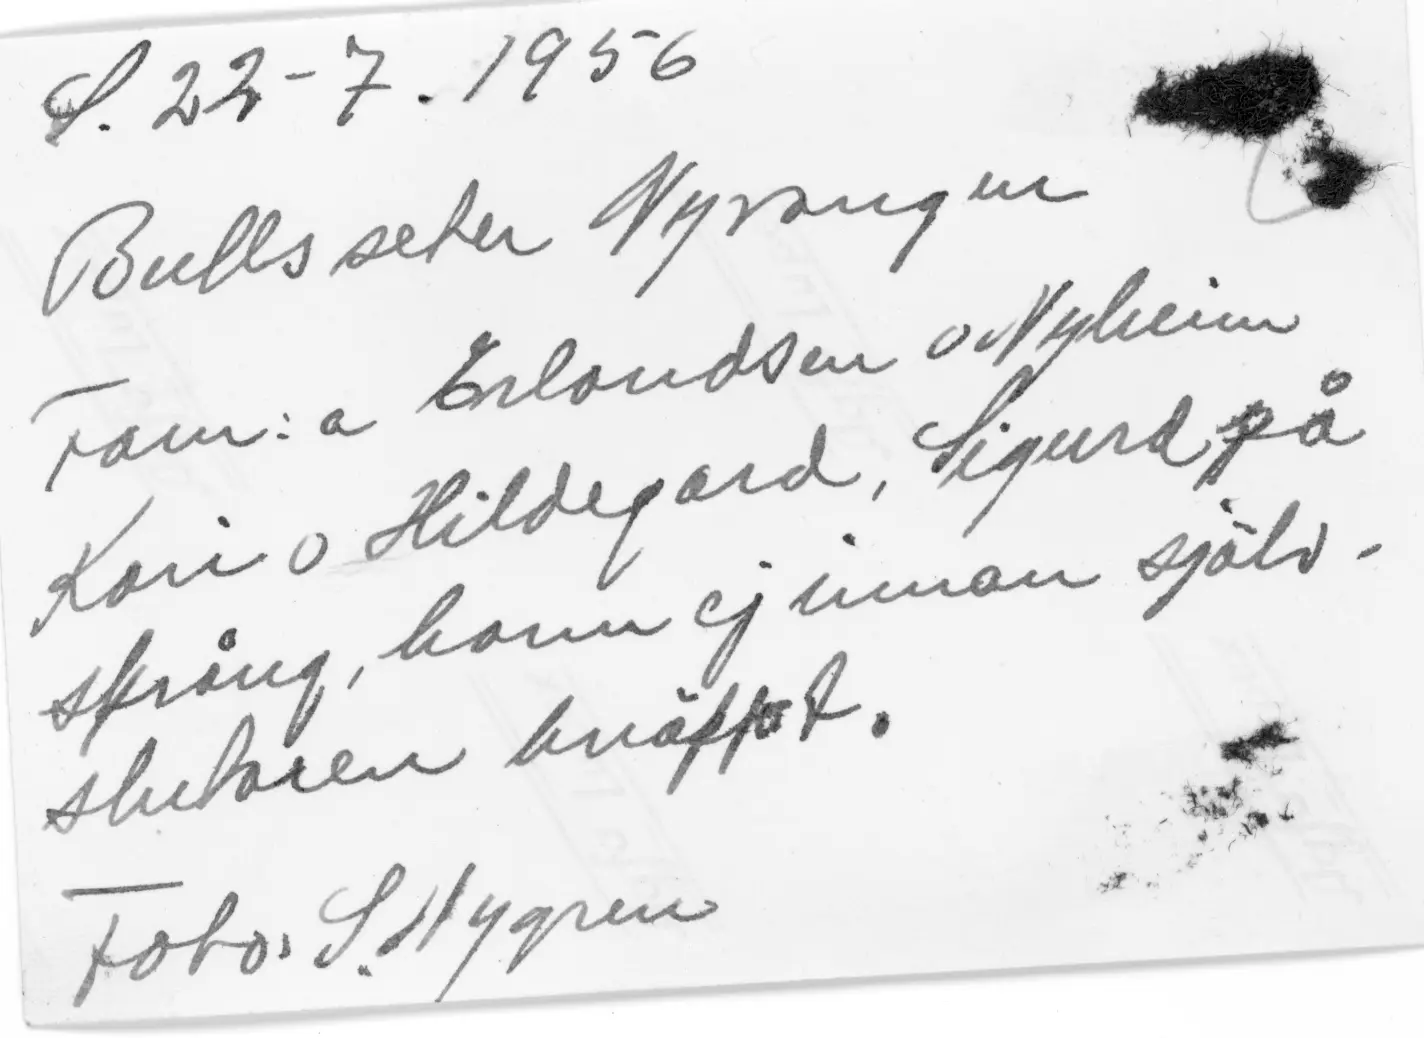 S. 22-7. 1956
Bulls seter Nyvangen
Fam: a Erlandsen o Nyheim
Kari o Hildegard, Sigurd på
språng, hann ej innan själv-
slutaren knäppt.
Foto. S. Nygren